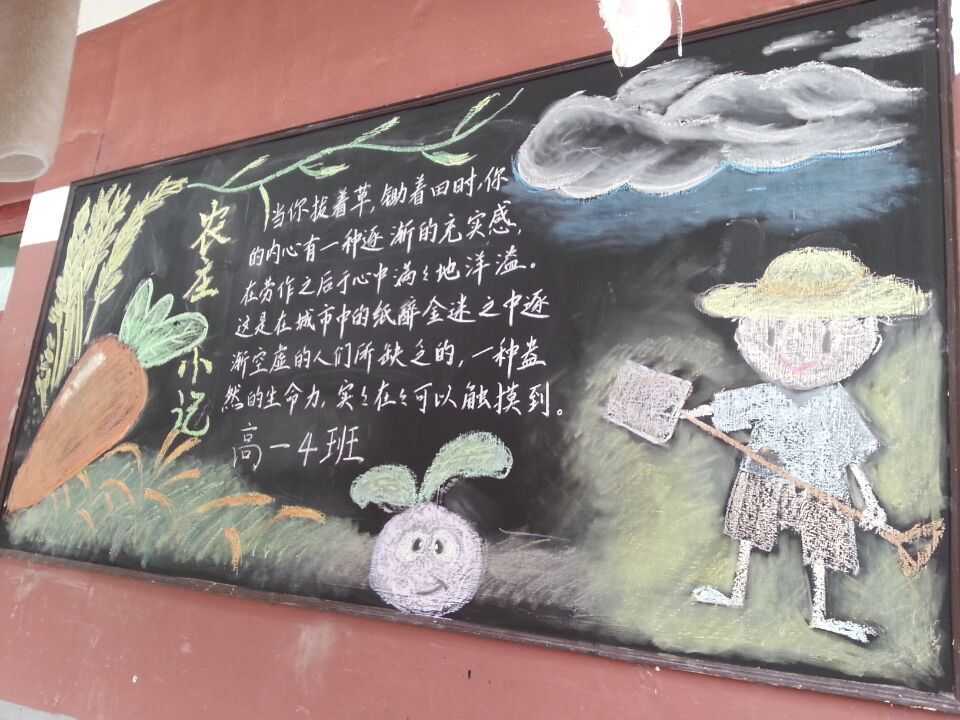 农庄小记
当你拔着草，锄着田时，你
的内心有一种逐渐的充实感，
在劳作之后于心中满々地洋溢。
这是在城市中的纸醉金迷之中逐
渐空虚的人们所缺乏的，一种盎
然的生命力，实々在々可以触摸到。
高一4班